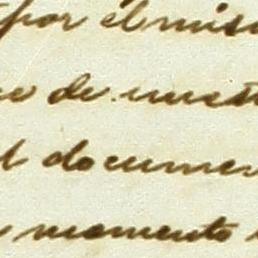 por el mis
de nuest
documen
momento